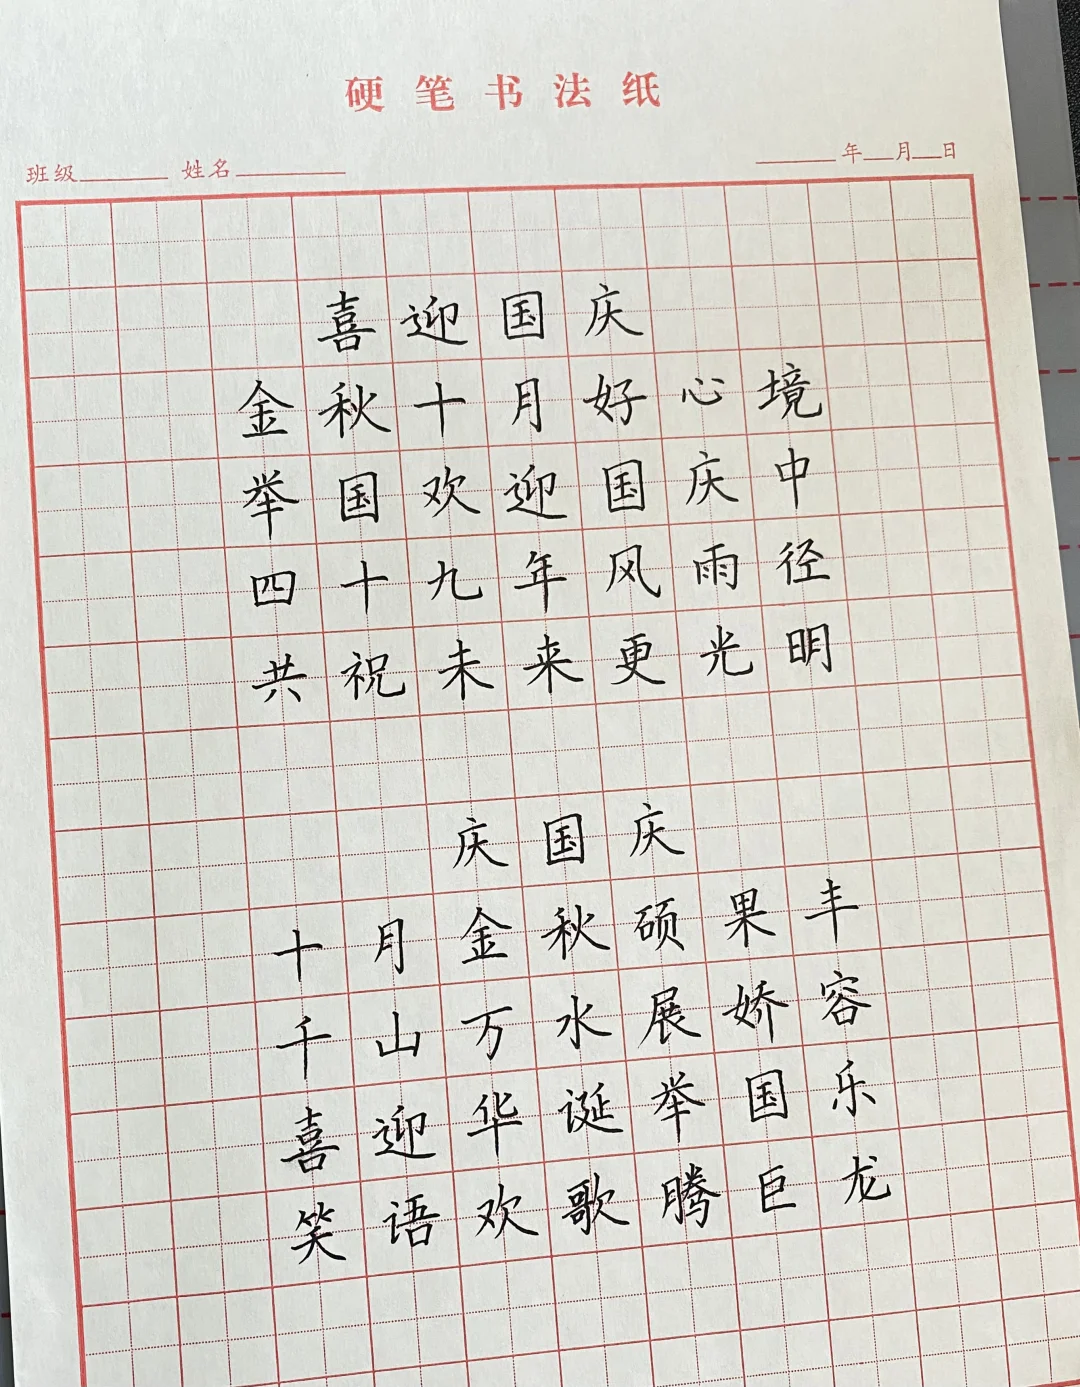 硬笔书法纸
班级 姓名 年 月 日
喜迎国庆
金秋十月好心境
举国欢迎国庆中
四十九年风雨径
共祝未来更光明
庆国庆
十月金秋硕果丰
千山万水展娇容
喜迎华诞举国乐
笑语欢歌腾巨龙